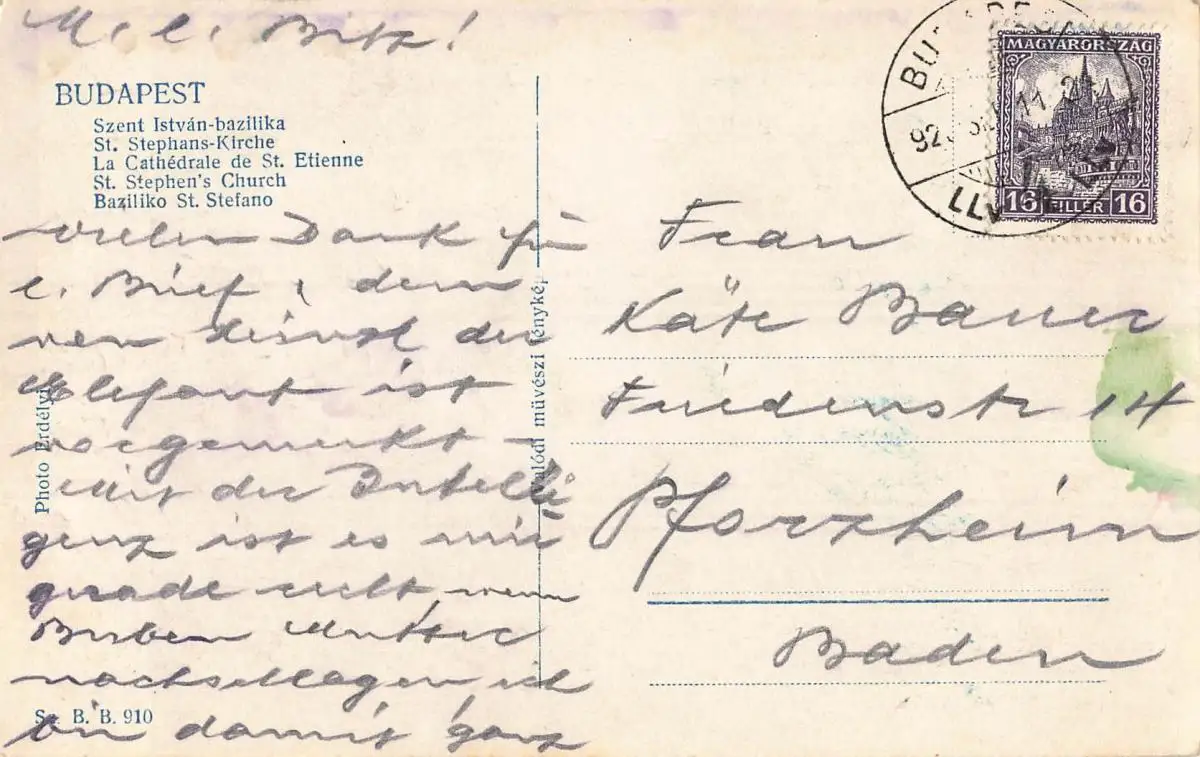 M. l. Bitz!
BUDAPEST
Szent István-bazilika
St. Stephans-Kirche
La Cathédrale de St. Etienne
St. Stephen's Church
Baziliko St. Stefano
vielen Dank für
l. Brief, dem
der
Elefant ist
vorgemerkt –
Mit der Intelli
genz ist es mir
gerade recht, wenn
Buben Mutter
nachschlagen, ich
bin damit ganz
Photo Erdélyi
Valódi művészi fénykép
Sz. B. B. 910
MAGYARORSZÁG
16 FILLÉR 16
Frau
Käte Bauer
Friedenstr 14
Pforzheim
Baden